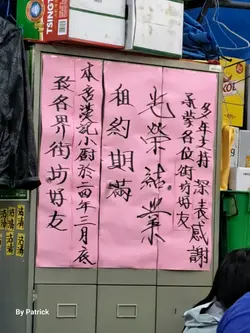 致各界街坊好友
本店漢記小廚於二四年三月底
租約期滿
光榮結業
承蒙各位街坊好友
多年支持 深表感謝
TSINGT
By Patrick